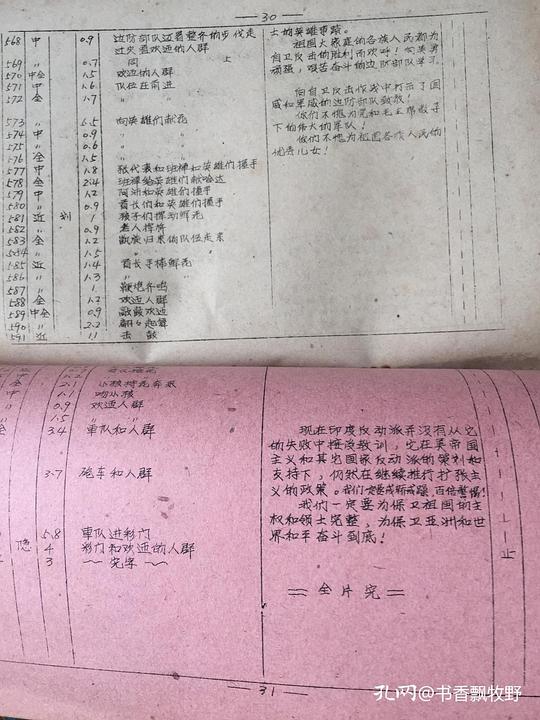 — 30 —
568 中 0.9 边防部队迈着整齐的步伐走
过夹道欢迎的人群
569 〃 0.7 同 上
570 中全 1.5 欢迎的人群
571 中 1.6 队伍在前进
572 全 1.7 〃
573 〃 6.5 向英雄们献花
574 中 0.9 〃
575 〃 0.6 〃
576 全 1.5 〃
577 中 1.8 张代表和班禅和英雄们握手
578 全 2.4 班禅给英雄们献哈达
579 中 1.2 阿沛和英雄们握手
580 〃 0.9 首长们和英雄们握手
581 近 划 1 孩子们挥动鲜花
582 〃 0.9 老人挥旗
583 全 1.2 凯旋归来的队伍走来
584 〃 1.5 〃
585 近 1.4 首长手棒鲜花
586 〃 1.3 〃
587 〃 1 鞭炮齐鸣
588 全 1.2 欢迎人群
589 中全 0.9 敲鼓欢迎
590 〃 2.2 翩々起舞
591 近 1.1 击 鼓
士的英雄事蹟。
祖国大家庭的各族人民都为
自卫反击的胜利而欢呼!向英勇
顽强,艰苦奋斗的边防部队学习。
向自卫反击作战中打击了国
威和军威的边防部队致敬!
你们不愧为党和毛主席教子
下的伟大的军队!
你们不愧为祖国各族人民的
优秀儿女!
全 2.1 小孩持花奔来
中 1.1 吻小孩
〃 0.9 欢迎人群
〃 1.5 〃
全 3.4 車队和人群
3.7 炮车和人群
5.8 車队进彩门
隐 4 彩门和欢迎的人群
3 〜 完字 〜
现在印度反动派并没有从它
的失败中接受教训,它在美帝国
主义和其它国家反动派的策划和
支持下,仍然在继续推行扩张主
义的政策。我们一定要戒骄戒躁,百倍警惕!
我们一定要为保卫祖国的主
权和领土完整,为保卫亚洲和世
界和平奋斗到底!
止
== 全 片 完 ==
— 31 —
孔网@书香飘牧野